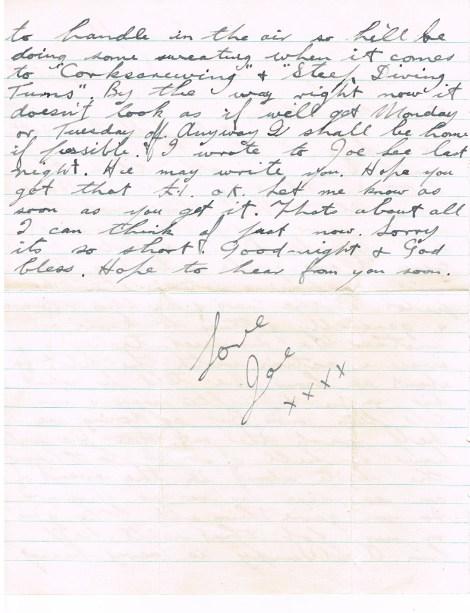 to handle in the air so he'll be
doing some sweating when it comes
to "Corkscrewing" & "Steep Diving
Turns". By the way right now it
doesn't look as if we'll get Monday
or Tuesday off. Anyway I shall be home
if possible. I wrote to Joe Lee last
night. He may write you. Hope you
got that £1. O.K. Let me know as
soon as you get it. Thats about all
I can think of just now. Sorry
its so short. Good-night & God
bless. Hope to hear from you soon.
Love
Joe
xxxx